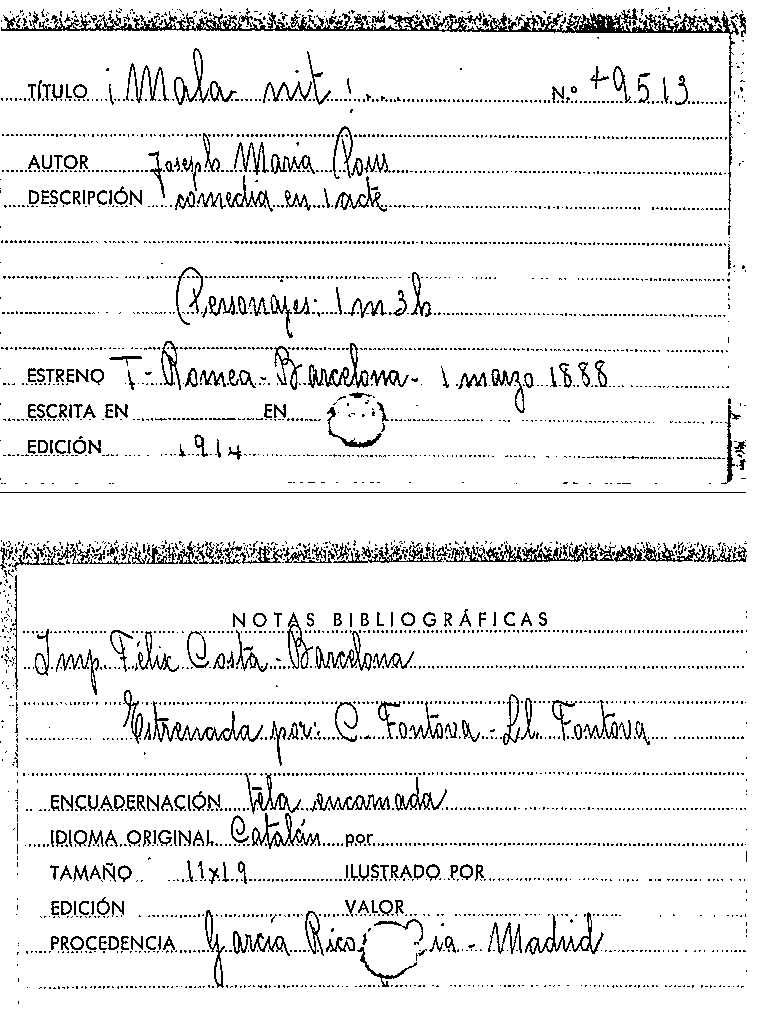 TÍTULO ¡Mala nit!... N.º 49513
AUTOR Joseph Maria Pous
DESCRIPCIÓN comedia en 1 acte
Personajes: 1 m 3 h
ESTRENO T- Romea- Barcelona- 1 marzo 1888
ESCRITA EN EN
EDICIÓN 1914
NOTAS BIBLIOGRÁFICAS
Imp. Félix Costa- Barcelona
Estrenada por: C. Fontova- Ll. Fontova
ENCUADERNACIÓN tela encarnada
IDIOMA ORIGINAL Catalán por
TAMAÑO 11x19 ILUSTRADO POR
EDICIÓN VALOR
PROCEDENCIA García Rico - Madrid